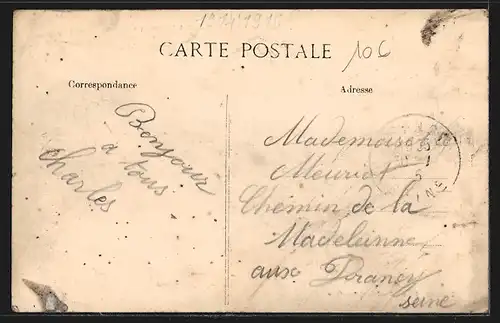 1914 1918
CARTE POSTALE
10 C
Correspondance
Adresse
Bonjour
a tous
Charles
Mademoiselle
Meuriot
Chemin de la
Madeleinne
aux Drancy
seine